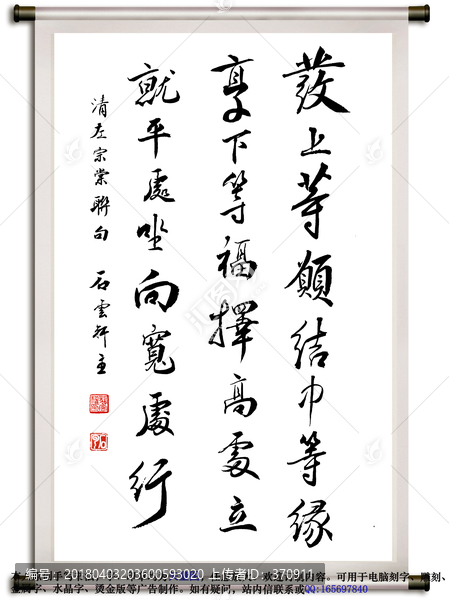 發上等願結中等緣
享下等福擇高處立
就平處坐向寬處行
清左宗棠聯句 石雲軒主
编号：20180403203600593020 上传者ID：370911
内容。可用于电脑刻字、雕刻、
金属字、水晶字、烫金版等广告制作。如有疑问，站内信联系或QQ:165697840